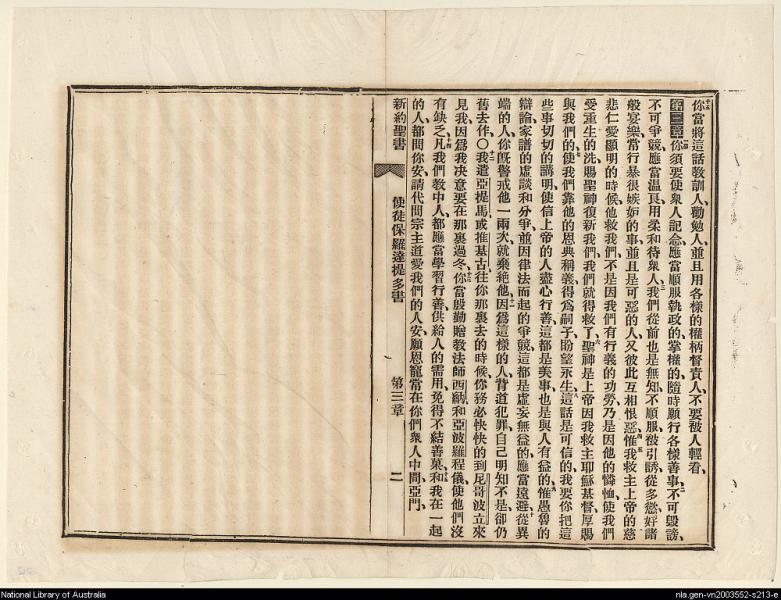 你當將這話教訓人、勸勉人、並且用各樣的權柄督責人、不要被人輕看、
第三章你須要使衆人記念應當順服執政的掌權的、隨時願行各樣善事、不可毀謗、
不可爭競、應當溫良、用柔和待衆人、我們從前也是無知、不順服、被引誘、從多慾、好諸
般宴樂、常行暴很嫉妒的事、並且是可惡的人、又彼此互相恨惡、惟我救主上帝的慈
悲仁愛顯明的時候、他救我們、不是因我們有行義的功勞、乃是因他的憐恤、使我們
受重生的洗、賜聖神復新我們、我們就得救了、聖神是上帝因我救主耶穌基督厚賜
與我們的、使我們靠他的恩典稱義、得爲嗣子、盼望永生、這話是可信的、我要你把這
些事切切的講明、使信上帝的人盡心行善、這都是美事、也是與人有益的、惟愚魯的
辯論、家譜的虛談、和分爭、並因律法而起的爭競、這都是虛妄無益的、應當遠避、從異
端的人、你旣警戒他一兩次、就棄絕他、因爲這樣的人、背道犯罪、自己明知不是、卻仍
舊去作、○我遣亞提馬或推基古往你那裏去的時候、你務必快快的到尼哥波立來
見我、因爲我決意要在那裏過冬、你當殷勤贈教法師西納和亞波羅程儀、使他們沒
有缺乏、凡我們教中人、都應當學習行善、供給人的需用、免得不結善菓、和我在一起
的人都問你安、請代問宗主道愛我們的人安、願恩寵當在你們衆人中間、亞們、
新約聖書 使徒保羅達提多書 第三章 二
National Library of Australia
nla.gen-vn2003552-s213-e